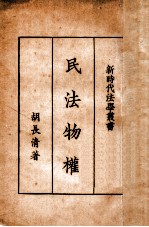 新時代法學叢書
民法物權
胡長清著